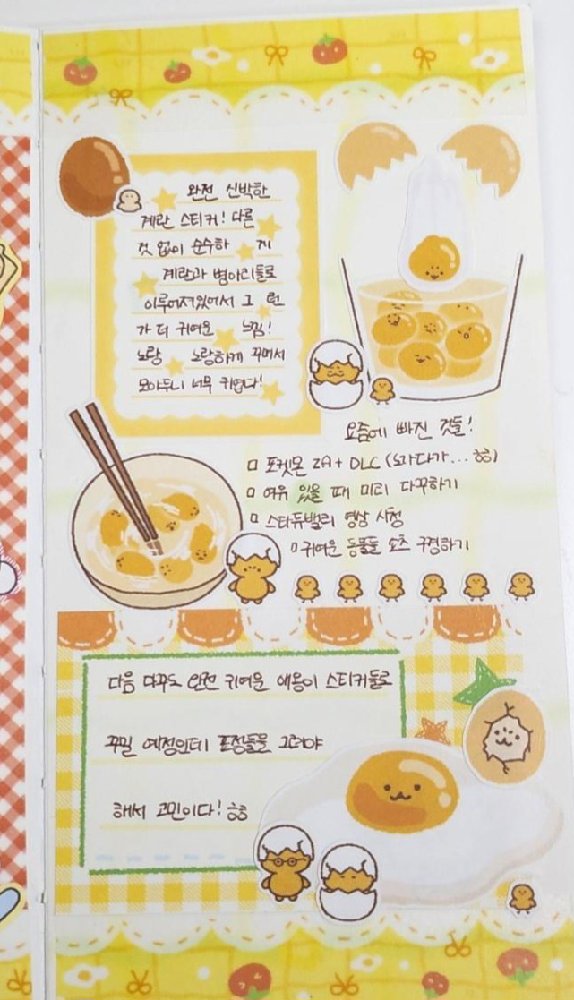 완전 신박한
계란 스티커! 다른
것 없이 순수하 게
계란과 병아리들로
이루어져있어서 그 런
가 더 귀여운 느낌!
노랑 노랑하게 꾸며서
모아두니 너무 귀엽다!
요즘에 빠진 것들!
□ 포켓몬 ZA + DLC (노가다가... ㅎㅎ)
□ 여유 있을 때 미리 다꾸하기
□ 스타듀밸리 영상 시청
□ 귀여운 동물들 쇼츠 구경하기
다음 다꾸도 완전 귀여운 애옹이 스티커들로
꾸밀 예정인데 표정들을 그려야
해서 고민이다! ㅎㅎ